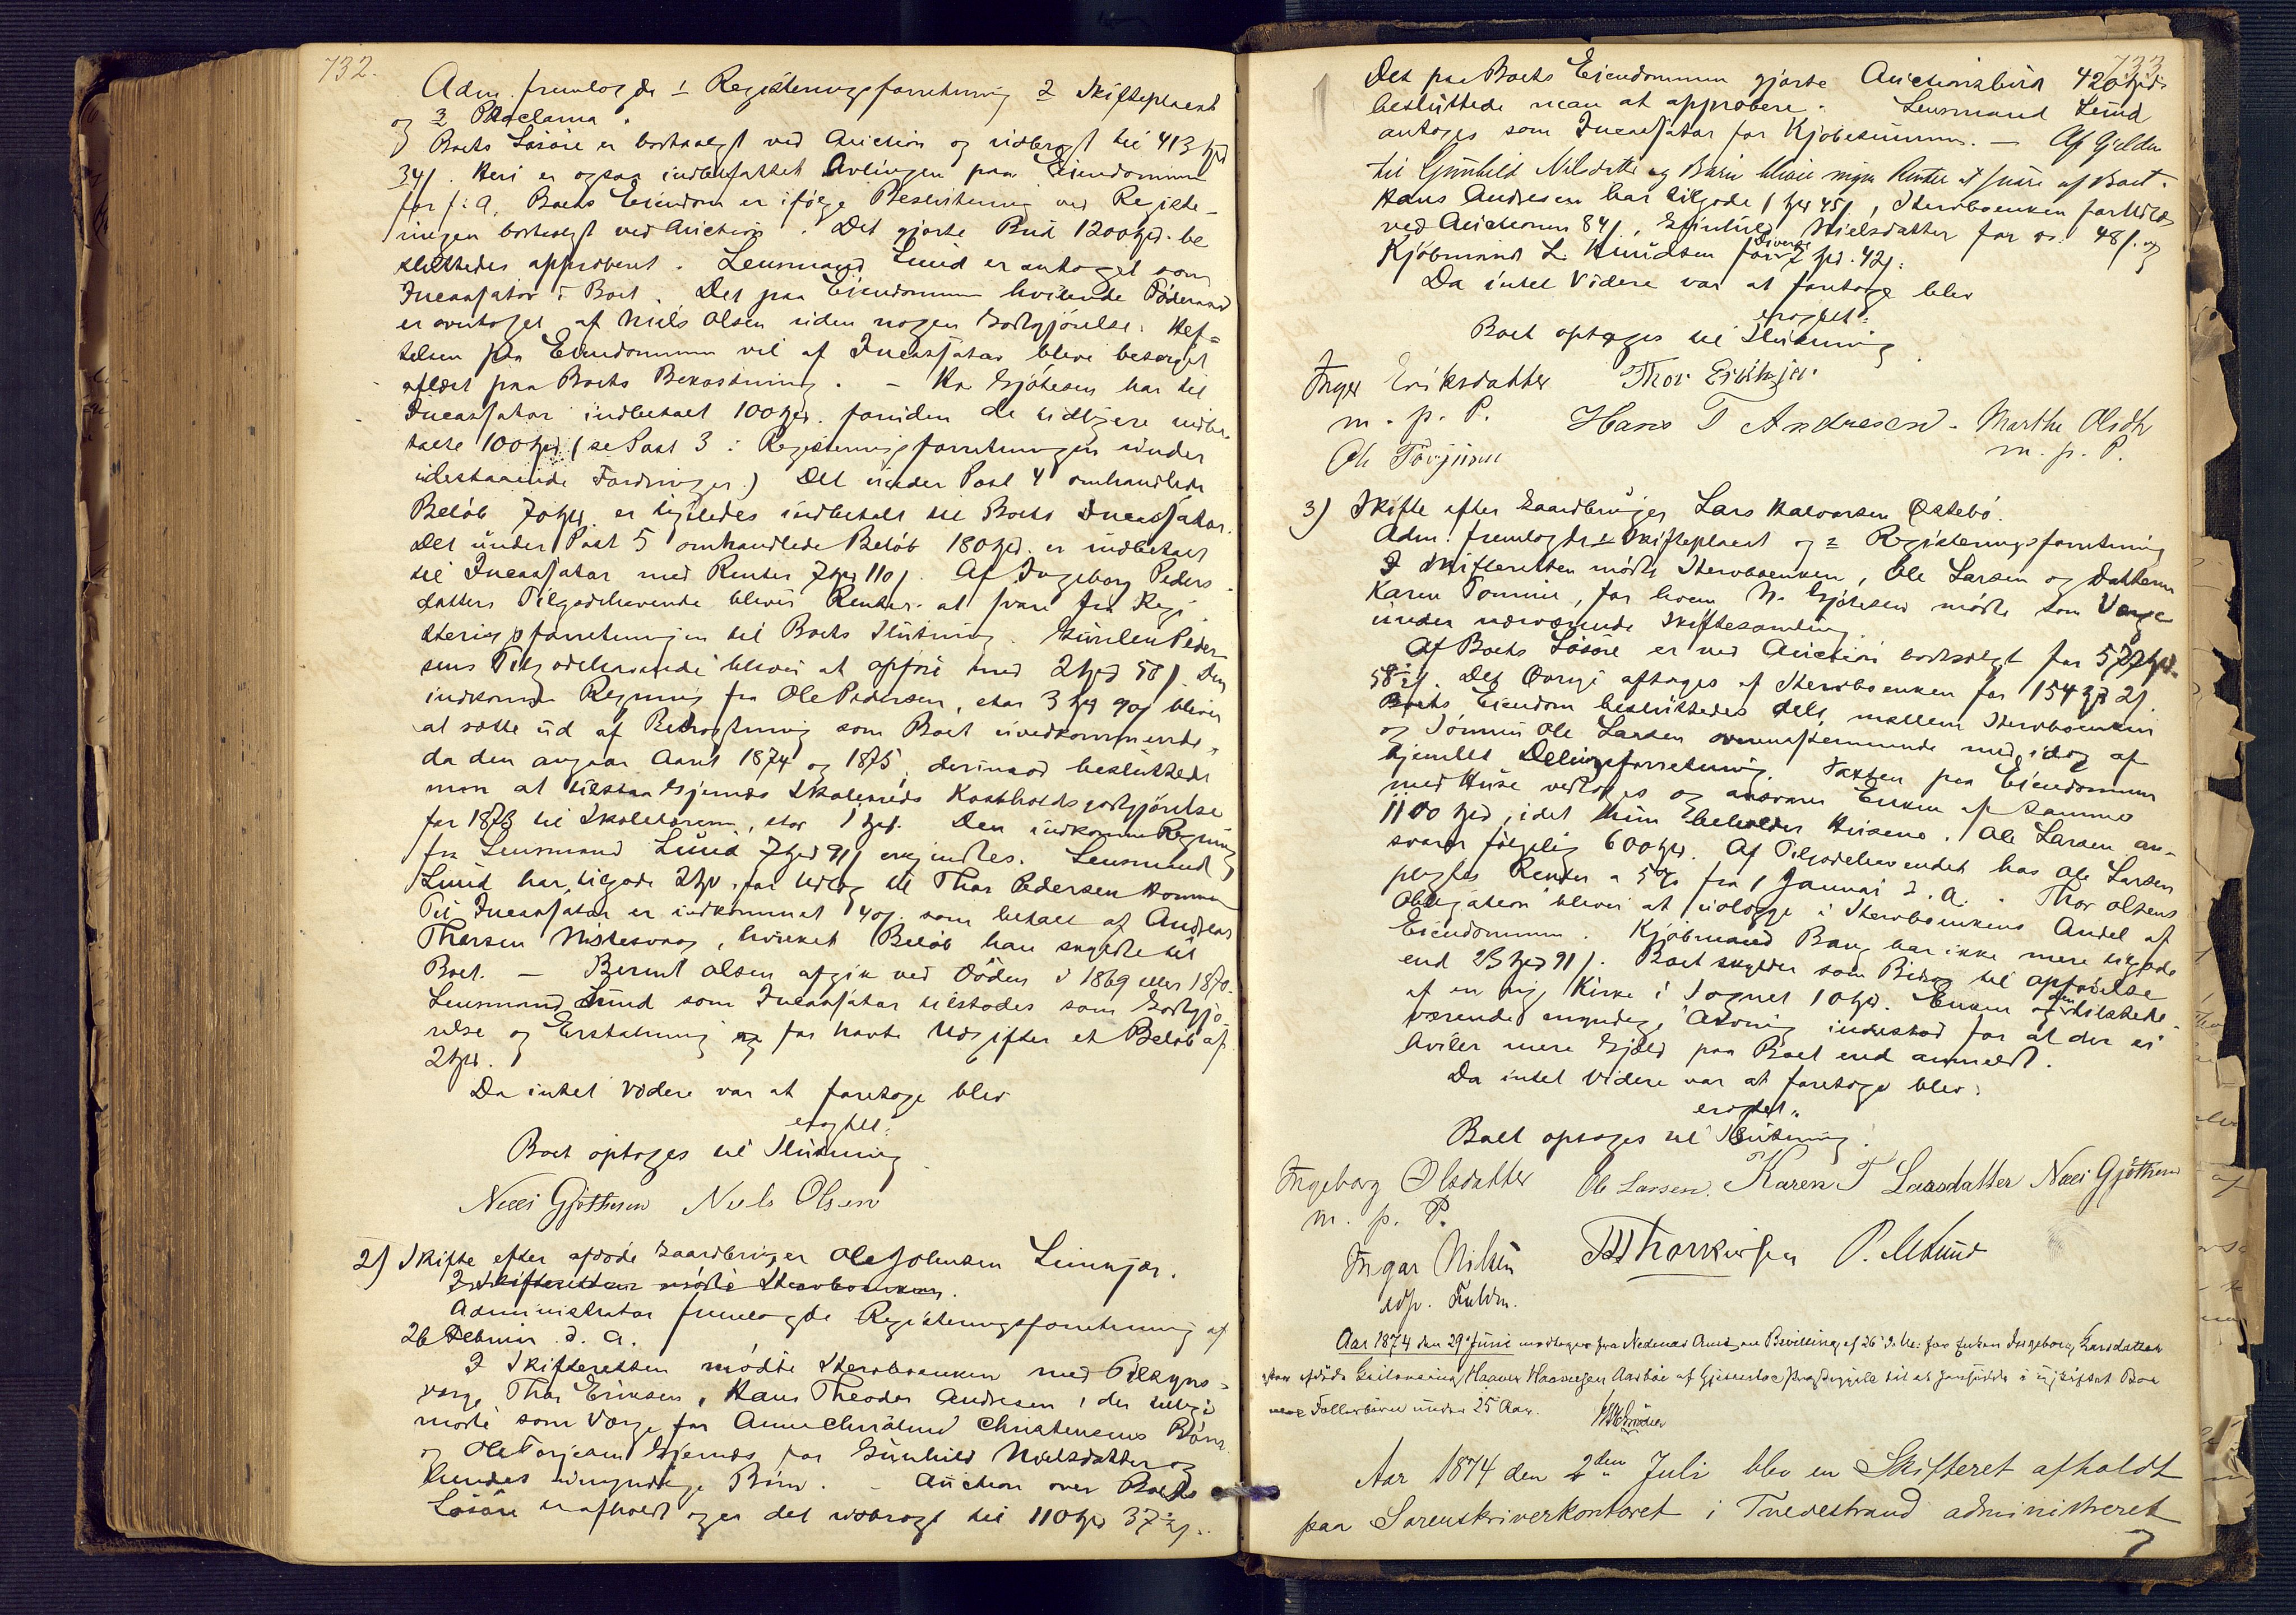 732.
Adm. fremlagde 1 Registreringsforretning 2 Skifteplacat
og 3 Proclama.
Boets Løsøre er bortsolgt ved Auction og udbragt til 413 Spd
34 s. Heri er ogsaa indbefattet Avlingen paa Eiendommen
for f: A. Boets Eiendom er ifølge Beslutning ved Registe-
ringen bortsolgt ved Auction. Det gjorte Bud 1200 Spd. be
sluttedes approberet. Lensmand Lund er antaget som
Incassator i Boet. Det paa Eiendommen hvilende Föderaad
er overtaget af Niels Olsen uden nogen Godtgjörelse. Hef-
telsen paa Eiendommen vil af Incassator blive besørget
aflæst paa Boets Bekostning. - Hr Gjøthesen har til
Incassator indbetalt 100 Spd. foruden de tidligere indbe-
talte 100 Spd (se Post 3 i Registreringsforretningen under
udestaaende Fordringer.) Det under Post 4 omhandlede
Beløb 70 Spd. er ligeledes indbetalt til Boets Incassator.
Det under Post 5 omhandlede Beløb 180 Spd. er indbetalt
til Incassator med Renter 7 Spd 110 s. Af Ingeborg Peders-
datters Tilgodehavende bliver Renter at svare fra Regi-
streringsforretningen til Boets Slutning. Gunlev Peder-
sens Tilgodehavende bliver at opføre med 2 Spd 58 s. Den
indkomne Regning fra Ole Pedersen, stor 3 Spd 90 s bliver
at sætte ud af Betragtning som Boet uvedkommende,
da den angaar Aaret 1874 og 1875, derimod besluttede
man at tilstaa Gjernæs Skolekreds Kostholdsgodtgjörelse
for 1873 til Skolelæreren, stor 1 Spd. Den indkomne Regning
fra Lensmand Lund 7 Spd 91 s erkjendtes. Lensmand
Lund har tilgode 2 Spd for Udlæg til Thor Pedersen
Til Incassator er indkommet 40 s. som betalt af Andreas
Thorsen Nistesvaag, hvilket Beløb han skyldte til
Boet. - Bernt Olsen afgik ved Döden i 1869 eller 1870.
Lensmand Lund som Incassator tilstodes som Godtgjö-
relse og Erstatning og for havte Udgifter et Beløb af
2 Spd.
Da intet Videre var at foretage blev
eragtet:
Boet optages til Slutning.
Niels Gjøthesen Niels Olsen
2) Skifte efter afdøde Gaardbruger Ole Johnsen Limkjær.
I Skifteretten mödte Stervboenken.
Administrator fremlagde Registreringsforretning af
26 Februar d. A.
I Skifteretten mødte Stervboenken med Tilsyns-
værge Thor Eriksen, Hans Theodor Andresen, der tillige
mødte som Værge for Anne Christensens Børn
og Ole Torjesen Gjernæs for Gunhild Nielsdatter og
hendes umyndige Børn. - Auction over Boets
Løsøre er afholdt og er det udbragt til 110 Spd 37 s.
733
Det paa Boets Eiendommen gjorte Auctionsbud 420 Spd.
besluttede man at approbere. Lensmand Lund
antoges som Incassator for Kjøbesummen. - Af Gjelden
til Gunhild Nilsdatter og Børn bliver ingen Renter at svare af Boet.
Hans Andresen har tilgode 1 Spd 45 s, Stervboenken
ved Auctionen 84 s., Gunhild Nielsdatter for 48 s. og
Kjøbmand L. Knudsen for Diverse 2 Spd. 42 s.
Da intet Videre var at foretage blev
eragtet:
Boet optages til Slutning.
Inger Eriksdatter Thor Eriksen
m. p. P. Hans T Andresen. Marthe Olsdtr
Ole Törjusen m. p. P.
3) Skifte efter Gaardbruger Lars Halvorsen Østebö.
Adm. fremlagde 1 Skifteplacat og 2 Registreringsforretning
I Skifteretten mødte Stervboenken, Ole Larsen og Datteren
Karen Tomine, for hvem N. Gjøthesen mødte som Værge
under nærværende Skiftesamling.
Af Boets Løsøre er ved Auction bortsolgt for 577 Spd.
58 s. Det Øvrige aftoges af Stervboenken for 154 Spd 2 s.
Boets Eiendom besluttedes delt mellem Stervboenken
og Sønnen Ole Larsen overensstemmende med idag af-
hjemlet Delingsforretning. Taxten paa Eiendommen
med Huse vedtoges og ansvarer Enken af samme
1100 Spd, idet hun beholder Husene. Ole Larsen an-
svarer følgelig 600 Spd. Af Tilgodehavendet hos Ole Larsen
svares Renter a 5% fra 1 Januar d. A. Thor Olsens
Obligation bliver at udlægge i Stervboenkens Andel af
Eiendommen. Kjøbmand Bang har ikke mere tilgode
end 23 Spd 91 s. Boet skylder som Bidrag til Opførelse
af en ny Kirke i Sognet 10 Spd. Enken og den tilstede-
værende myndige Arving indestod for at der ei
hviler mere Gjæld paa Boet end anmeldt.
Da intet Videre var at foretage blev:
eragtet:
Boet optages til Slutning.
Ingeborg Olsdatter Ole Larsen. Karen T Larsdatter Niels Gjøthesen
m. p. P.
Ingar Nilsen P. M Lund
Aar 1874 den 29 Juni modtoges fra Nedenæs Amt en Bevilling af 26 d. M. for Enken Ingeborg Larsdatter
efter afdøde Haaver Haaversen Aasbøe af Gjerrestad Præstegjeld til at hensidde i uskiftet Boe
med Fællesbørn under 25 Aar.
Aar 1874 den 2den Juli blev en Skifteret afholdt
paa Sorenskriverkontoret i Tvedestrand administreret